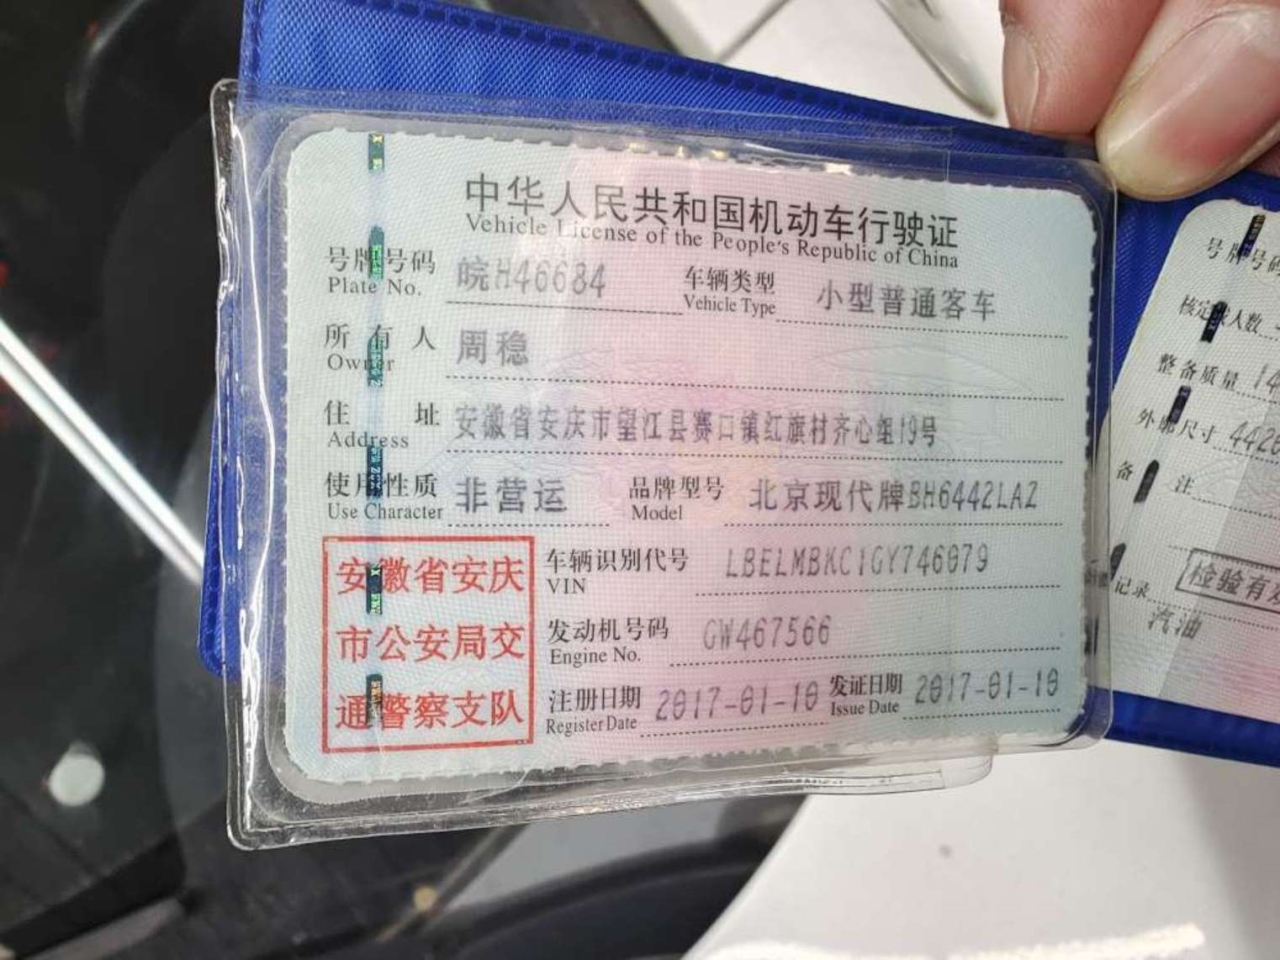 中华人民共和国机动车行驶证
Vehicle License of the People's Republic of China
号牌号码 皖H46684 车辆类型 小型普通客车
Plate No. Vehicle Type
所有人 周稳
Owner
住址 安徽省安庆市望江县赛口镇红旗村齐心组19号
Address
使用性质 非营运 品牌型号 北京现代牌BH6442LAZ
Use Character Model
车辆识别代号 LBELMBKC1GY746079
VIN
发动机号码 GW467566
Engine No.
注册日期 2017-01-10 发证日期 2017-01-10
Register Date Issue Date
安徽省安庆
市公安局交
通警察支队
号牌号码
核定载人数
整备质量 14
外廓尺寸 442
备注
记录
检验有
汽油